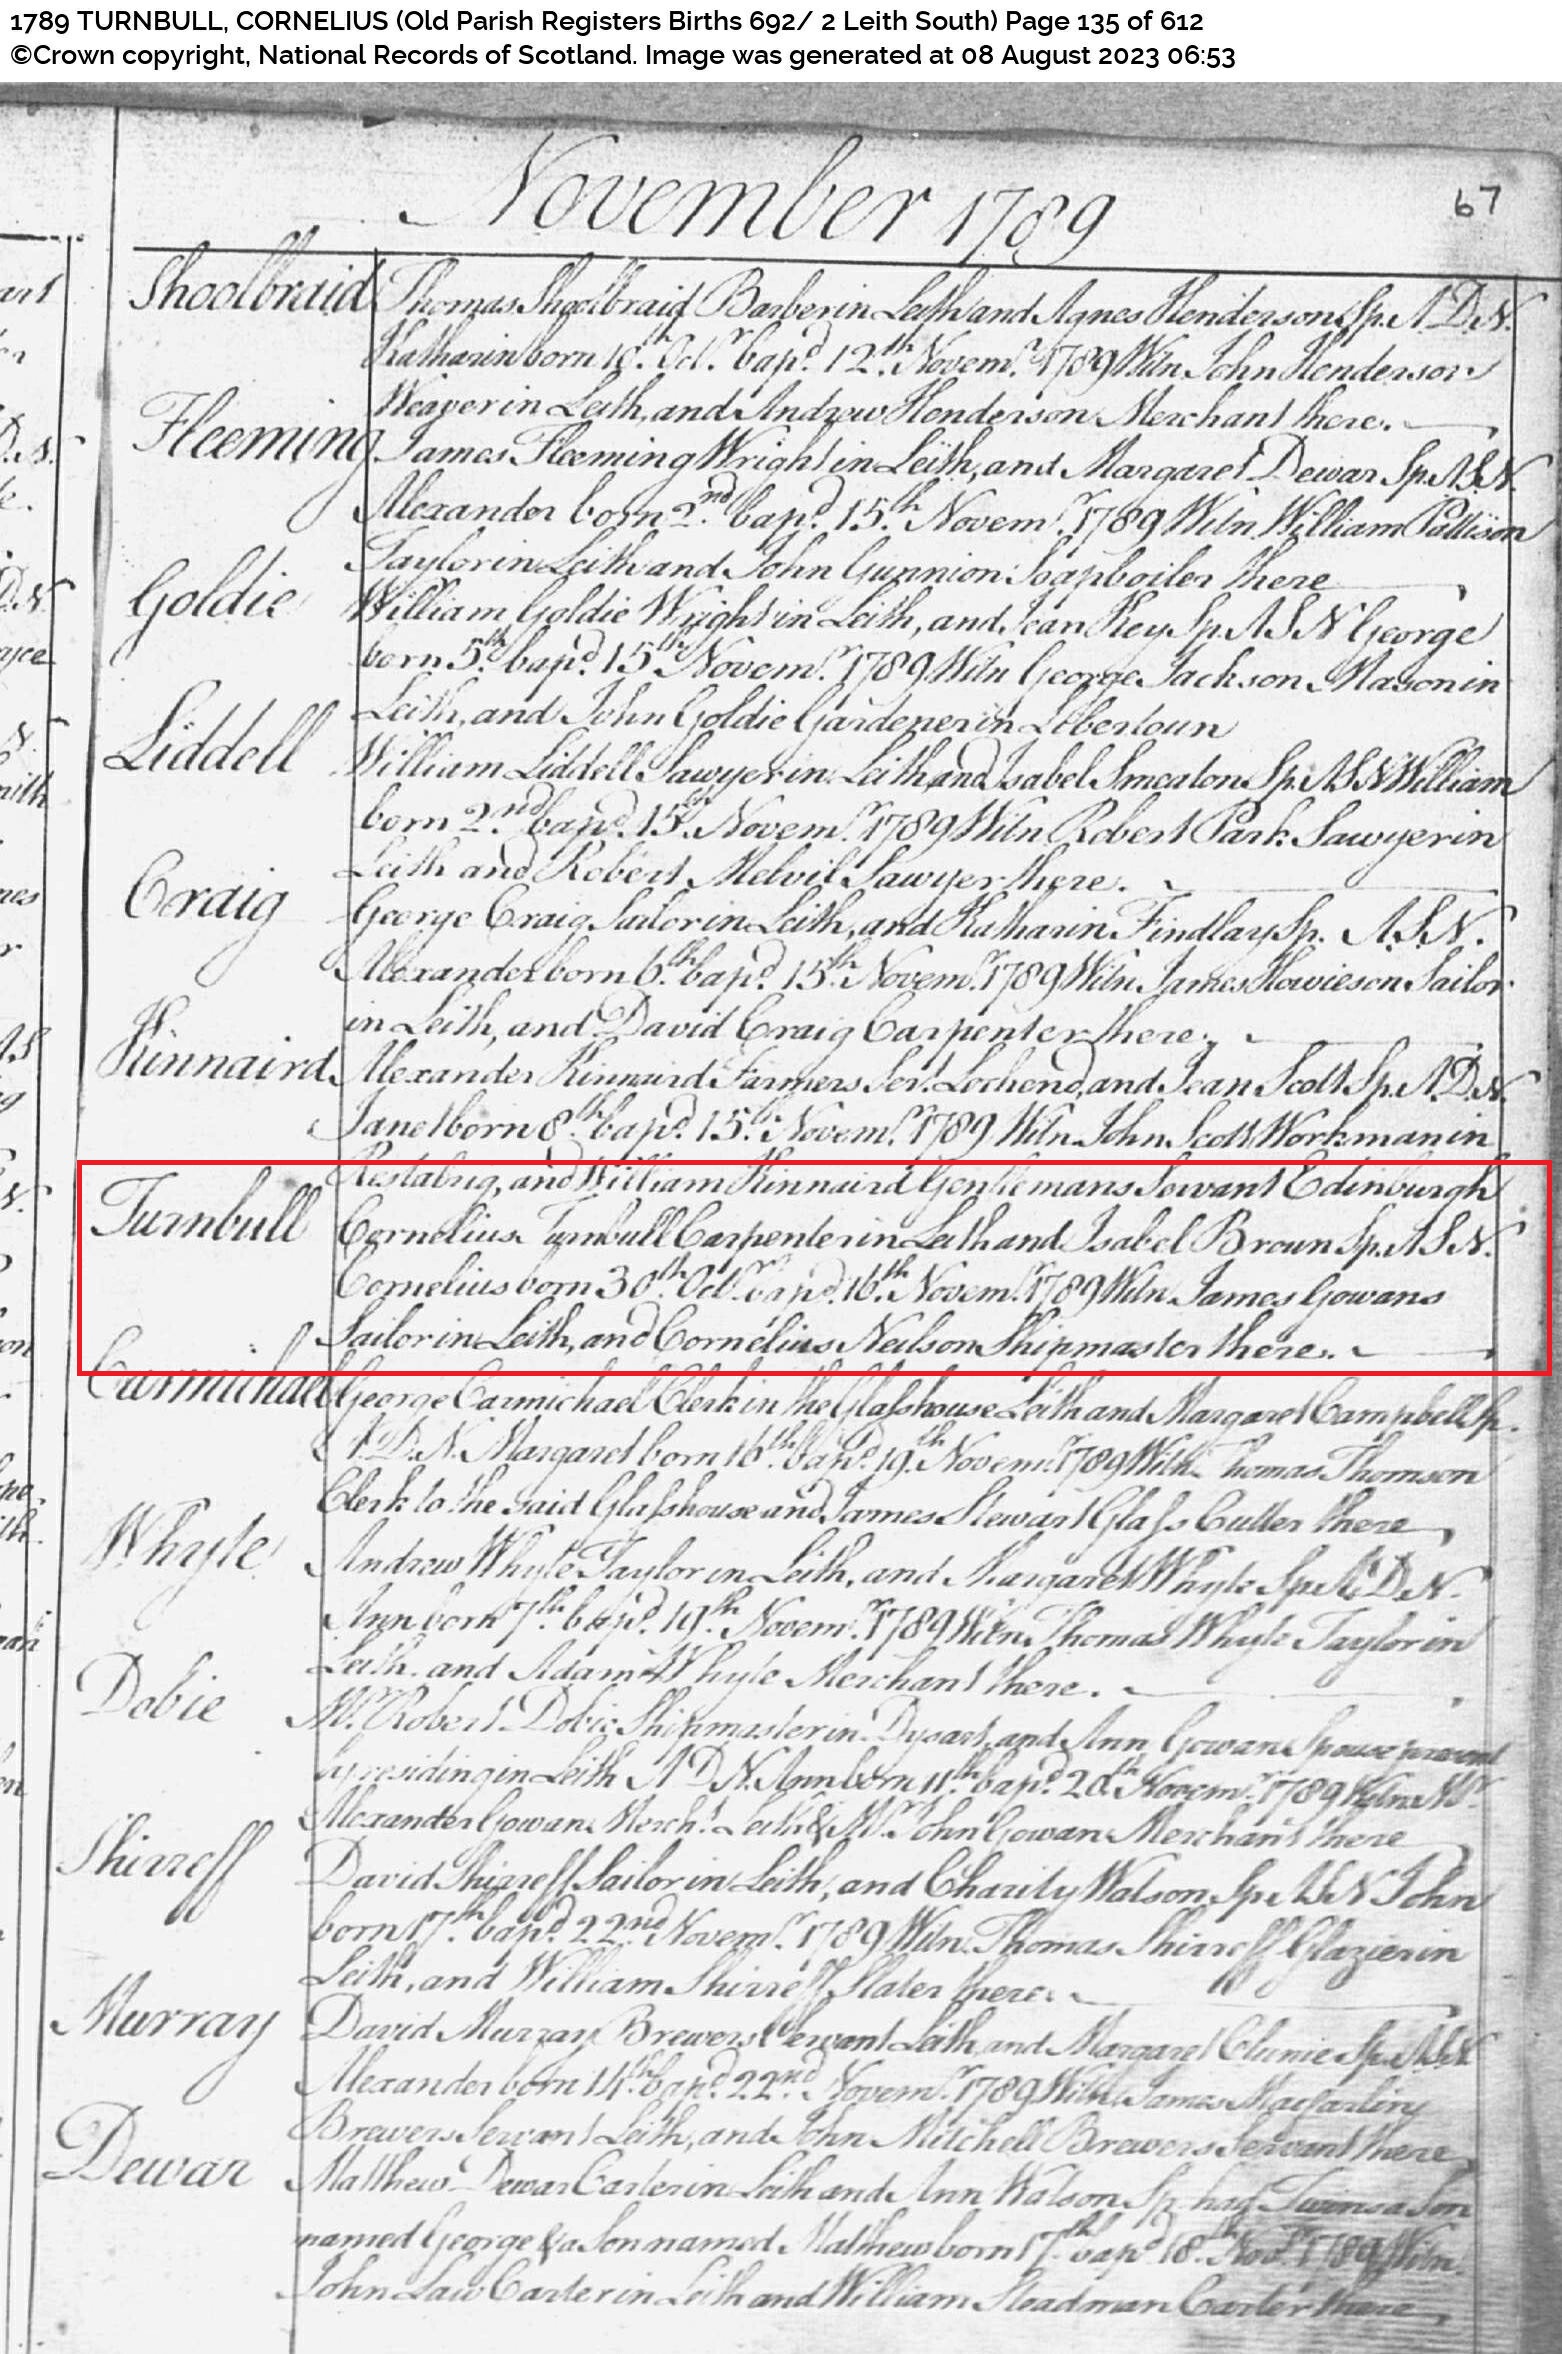 1789 TURNBULL, CORNELIUS (Old Parish Registers Births 692/ 2 Leith South) Page 135 of 612
©Crown copyright, National Records of Scotland. Image was generated at 08 August 2023 06:53
November 1789
67
Shoolbraid Thomas Shoolbraid Barber in Leith and Agnes Henderson Sp. A.D.N.
Katharin born 18th. Octr. bapd. 12th. Novemr. 1789 Witn. John Henderson
Weaver in Leith, and Andrew Henderson Merchant there.
Fleeming James Fleeming Wright in Leith, and Margaret Dewar Sp. A.S.N.
Alexander born 2nd. bapd. 15th. Novemr. 1789 Witn. William Pattison
Taylor in Leith and John Gunnion Soapboiler there
Goldie William Goldie Wright in Leith, and Jean Key Sp. A S N George
born 5th. bapd. 15th Novemr. 1789 Witn George Jackson Mason in
Leith, and John Goldie Gardener in Libertoun
Liddell William Liddell Sawyer in Leith and Isabel Smeaton Sp. A S N William
born 2nd. bapd. 15th. Novemr. 1789 Witn Robert Park Sawyer in
Leith and Robert Melvil Sawyer there.
Craig George Craig Sailor in Leith, and Katharin Findlay Sp. A.S.N.
Alexander born 6th. bapd. 15th. Novemr. 1789 Witn James Howieson Sailor
in Leith, and David Craig Carpenter there.
Kinnaird Alexander Kinnaird Farmers Servt. Lochend, and Jean Scott Sp. A.D.N.
Janet born 8th. bapd. 15th. Novemr. 1789 Witn. John Scott Workman in
Restalrig, and William Kinnaird Gentlemans Servant Edinburgh
Turnbull Cornelius Turnbull Carpenter in Leith and Isabel Broun Sp. A S N.
Cornelius born 30th. Octr. bapd. 16th. Novemr. 1789 Witn. James Gowans
Sailor in Leith, and Cornelius Neilson Shipmaster there.
Carmichael George Carmichael Clerk in the Glasshouse Leith and Margaret Campbell Sp.
A.D.N. Margaret born 16th. bapd. 19th. Novemr. 1789 Witn. Thomas Thomson
Clerk to the said Glasshouse and James Stewart Glass Cutter there
Whyte Andrew Whyte Taylor in Leith, and Margaret Whyte Sp. A. D. N.
Ann born 7th. bapd. 19th. Novemr. 1789 Witn Thomas Whyte Taylor in
Leith and Adam Whyte Merchant there.
Dobie Mr. Robert Dobie Shipmaster in Dysart, and Ann Gowan Spouse present
ly residing in Leith A D N. Ann born 11th. bapd. 20th Novemr. 1789 Witn. Mr.
Alexander Gowan Mercht. Leith & Mr. John Gowan Merchant there
Shirreff David Shirreff Sailor in Leith, and Charity Watson Sp. A S N John
born 17th. bapd. 22nd Novemr. 1789 Witn. Thomas Shirreff Glazier in
Leith, and William Shirreff Slater there.
Murray David Murray Brewers Servant Leith and Margaret Clunie Sp. A.S.N
Alexander born 14th. bapd. 22nd. Novemr. 1789 Witn. James
Brewers Servant Leith, and John Mitchell Brewers Servant there
Dewar Matthew Dewar Carter in Leith and Ann Watson Sp. had Twins a Son
named George & a Son named Matthew born 17th. bapd 18th. Novr. 1789 Witn.
John Law Carter in Leith and William Steadman Carter there